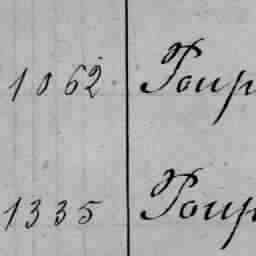 1062 Poup
1335 Poup